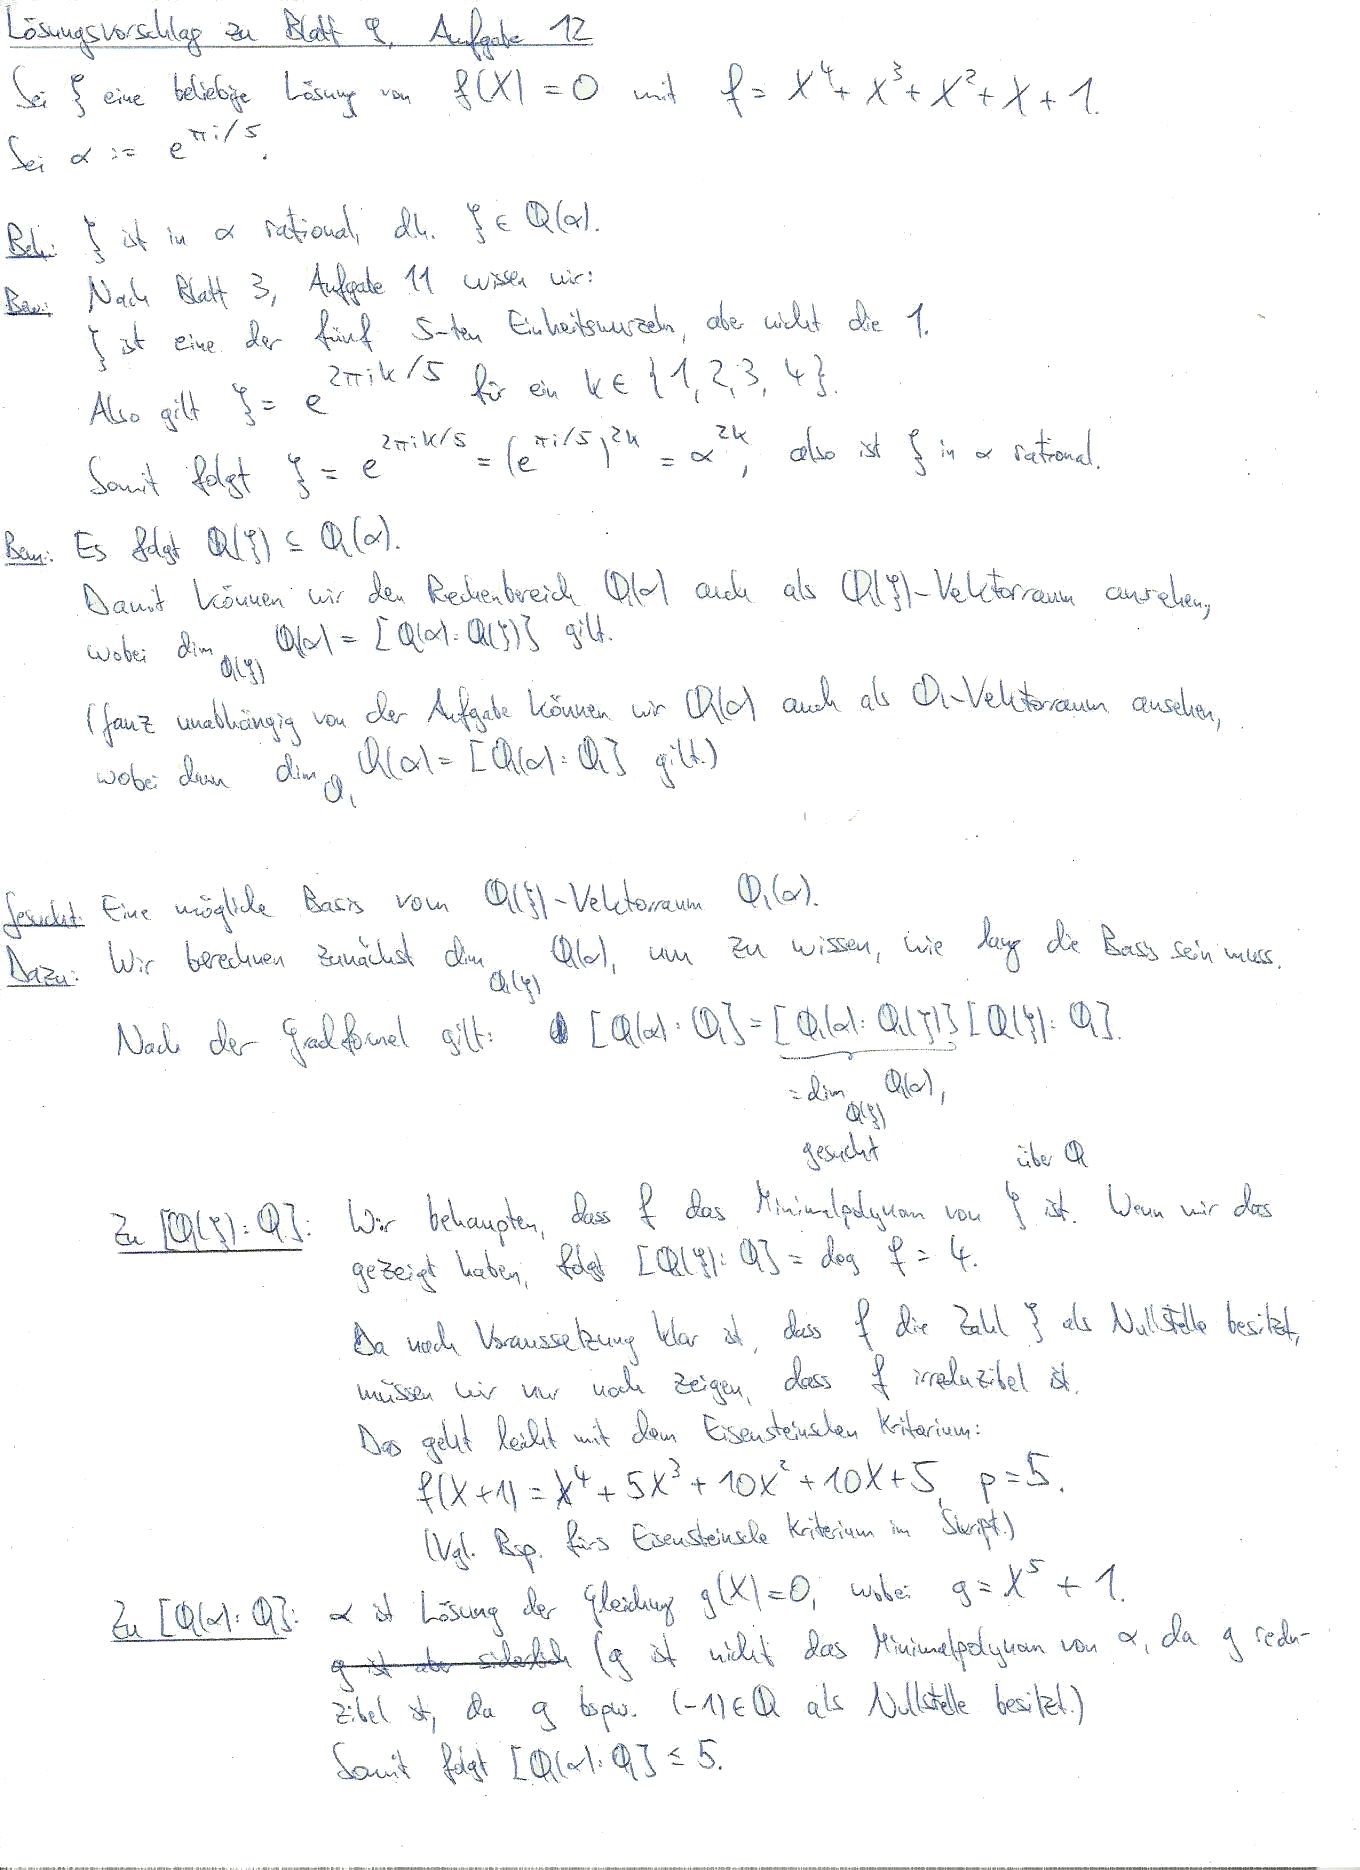 Lösungsvorschlag zu Blatt 9, Aufgabe 12
Sei ξ eine beliebige Lösung von f(X) = 0 mit f = X⁴ + X³ + X² + X + 1.
Sei α := e^{πi/5}.
Beh.: ξ ist in α rational, d.h. ξ ∈ ℚ(α).
Bew.: Nach Blatt 3, Aufgabe 11 wissen wir:
ξ ist eine der fünf 5-ten Einheitswurzeln, aber nicht die 1.
Also gilt ξ = e^{2πik/5} für ein k ∈ {1, 2, 3, 4}.
Somit folgt ξ = e^{2πik/5} = (e^{πi/5})^{2k} = α^{2k}, also ist ξ in α rational.
Bem.: Es folgt ℚ(ξ) ⊆ ℚ(α).
Damit können wir den Rechenbereich ℚ(α) auch als ℚ(ξ)-Vektorraum ansehen,
wobei dim_{ℚ(ξ)} ℚ(α) = [ℚ(α) : ℚ(ξ)] gilt.
(Ganz unabhängig von der Aufgabe können wir ℚ(α) auch als ℚ-Vektorraum ansehen,
wobei dann dim_ℚ ℚ(α) = [ℚ(α) : ℚ] gilt.)
Gesucht: Eine mögliche Basis vom ℚ(ξ)-Vektorraum ℚ(α).
Dazu: Wir berechnen zunächst dim_{ℚ(ξ)} ℚ(α), um zu wissen, wie lang die Basis sein muss.
Nach der Gradformel gilt: [ℚ(α) : ℚ] = [ℚ(α) : ℚ(ξ)] [ℚ(ξ) : ℚ].
= dim_{ℚ(ξ)} ℚ(α),
gesucht
über ℚ
Zu [ℚ(ξ) : ℚ]: Wir behaupten, dass f das Minimalpolynom von ξ ist. Wenn wir das
gezeigt haben, folgt [ℚ(ξ) : ℚ] = deg f = 4.
Da nach Voraussetzung klar ist, dass f die Zahl ξ als Nullstelle besitzt,
müssen wir nur noch zeigen, dass f irreduzibel ist.
Das geht leicht mit dem Eisensteinschen Kriterium:
f(X+1) = X⁴ + 5X³ + 10X² + 10X + 5, p = 5.
(Vgl. Bsp. fürs Eisensteinsche Kriterium im Skript.)
Zu [ℚ(α) : ℚ]: α ist Lösung der Gleichung g(X) = 0, wobei g = X⁵ + 1.
g ist aber sicherlich (g ist nicht das Minimalpolynom von α, da g redu-
zibel ist, da g bspw. (-1) ∈ ℚ als Nullstelle besitzt.)
Somit folgt [ℚ(α) : ℚ] ≤ 5.